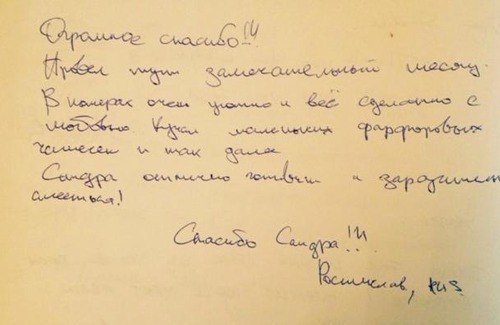 Огромное спасибо!!!
Провел тут замечательный месяц.
В номерах очен уютно и всё сделанно с
любовью. Куча маленьких фарфоровых
чашечек и так далее
Сандра отлично готовит и заразительно
смееться!
Спасибо Сандра!!!
Ростислав, RUS